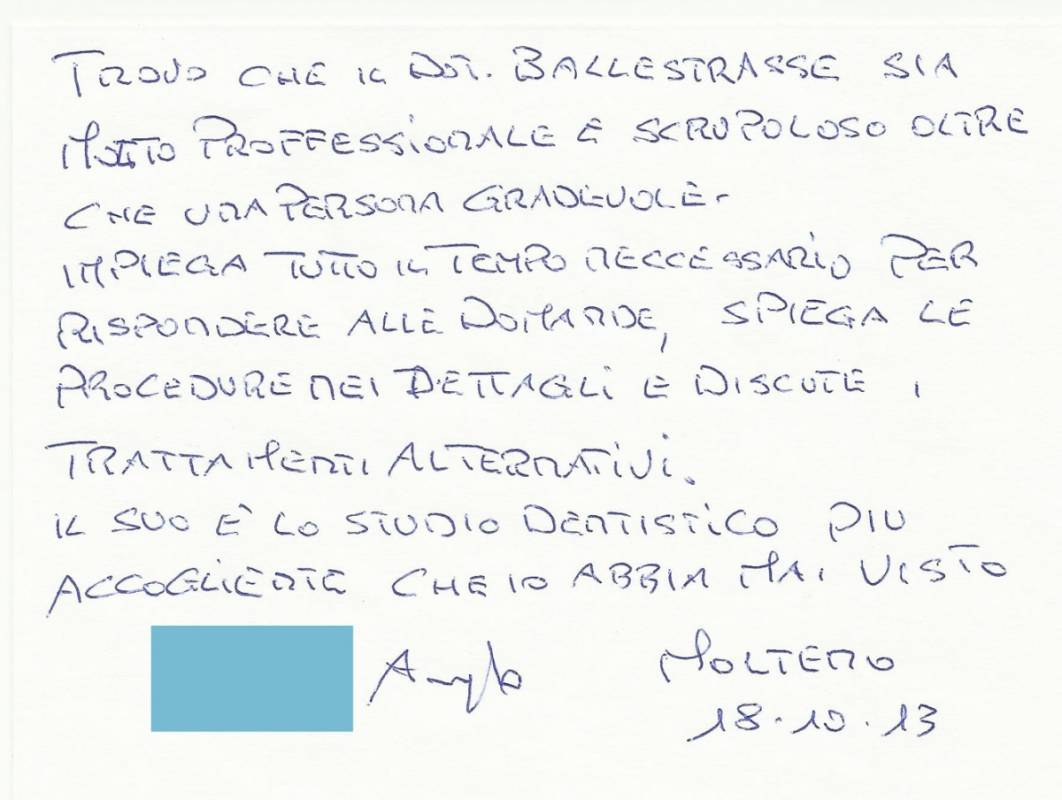 TROVO CHE IL DOT. BALLESTRASSE SIA
MOLTO PROFFESSIONALE E SCRUPOLOSO OLTRE
CHE UNA PERSONA GRADEVOLE-
IMPIEGA TUTTO IL TEMPO NECCESSARIO PER
RISPONDERE ALLE DOMANDE, SPIEGA LE
PROCEDURE NEI DETTAGLI E DISCUTE I
TRATTAMENTI ALTERNATIVI.
IL SUO E' LO STUDIO DENTISTICO PIU
ACCOGLIENTE CHE IO ABBIA MAI VISTO
Angelo MOLTENO
18.10.13